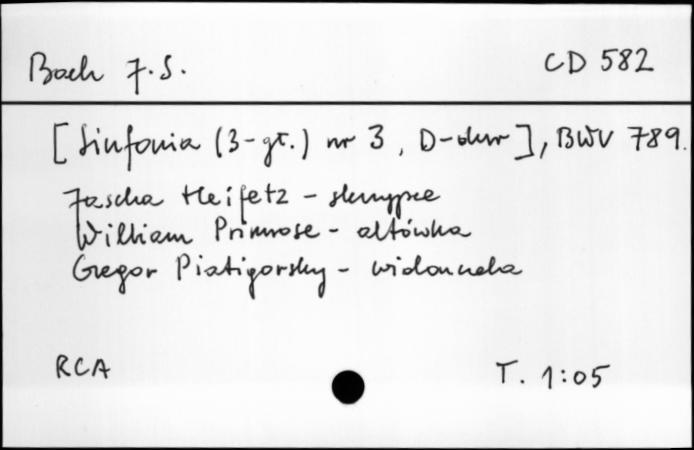 Bach J.S.
CD 582
[Sinfonia (3-gł.) nr 3, D-dur], BWV 789.
Jascha Heifetz - skrzypce
William Primrose - altówka
Gregor Piatigorsky - wiolonczela
RCA
T. 1:05